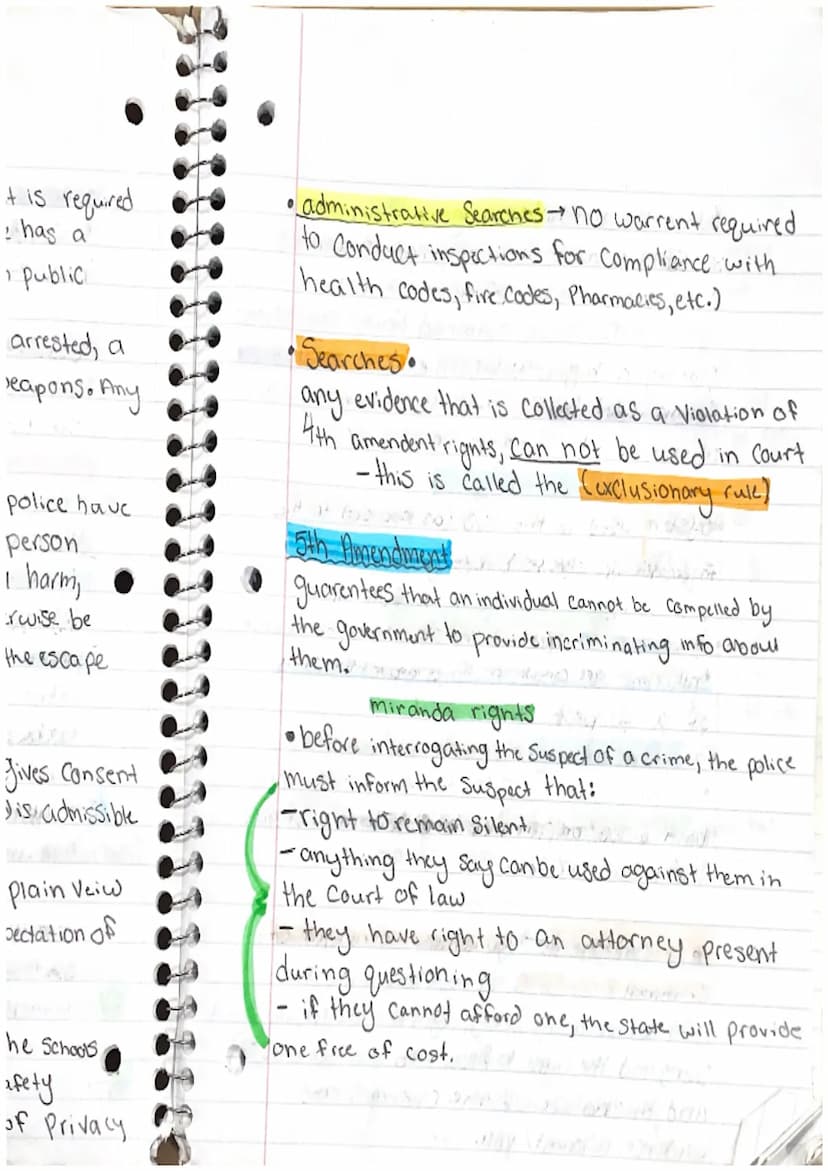 t is required
has a
public
arrested, a
eapons. Any
police have
person
harm,
rwise be
the escape
gives consent
is admissible
plain veiw
pectation of
he schools
afety
of Privacy
• administrative Searches → no warrent required
to conduct inspections for compliance with
health codes, fire codes, Pharmacies, etc.)
• Searches •
any evidence that is collected as a violation of
4th amendent rights, can not be used in court
- this is called the (exclusionary rule)
5th Amendment
guarentees that an individual cannot be compelled by
the government to provide incriminating info about
them.
miranda rights
• before interrogating the suspect of a crime, the police
must inform the suspect that:
- right to remain silent
- anything they say can be used against them in
the court of law
- they have right to an attorney present
during questioning
- if they cannot afford one, the state will provide
one free of cost.